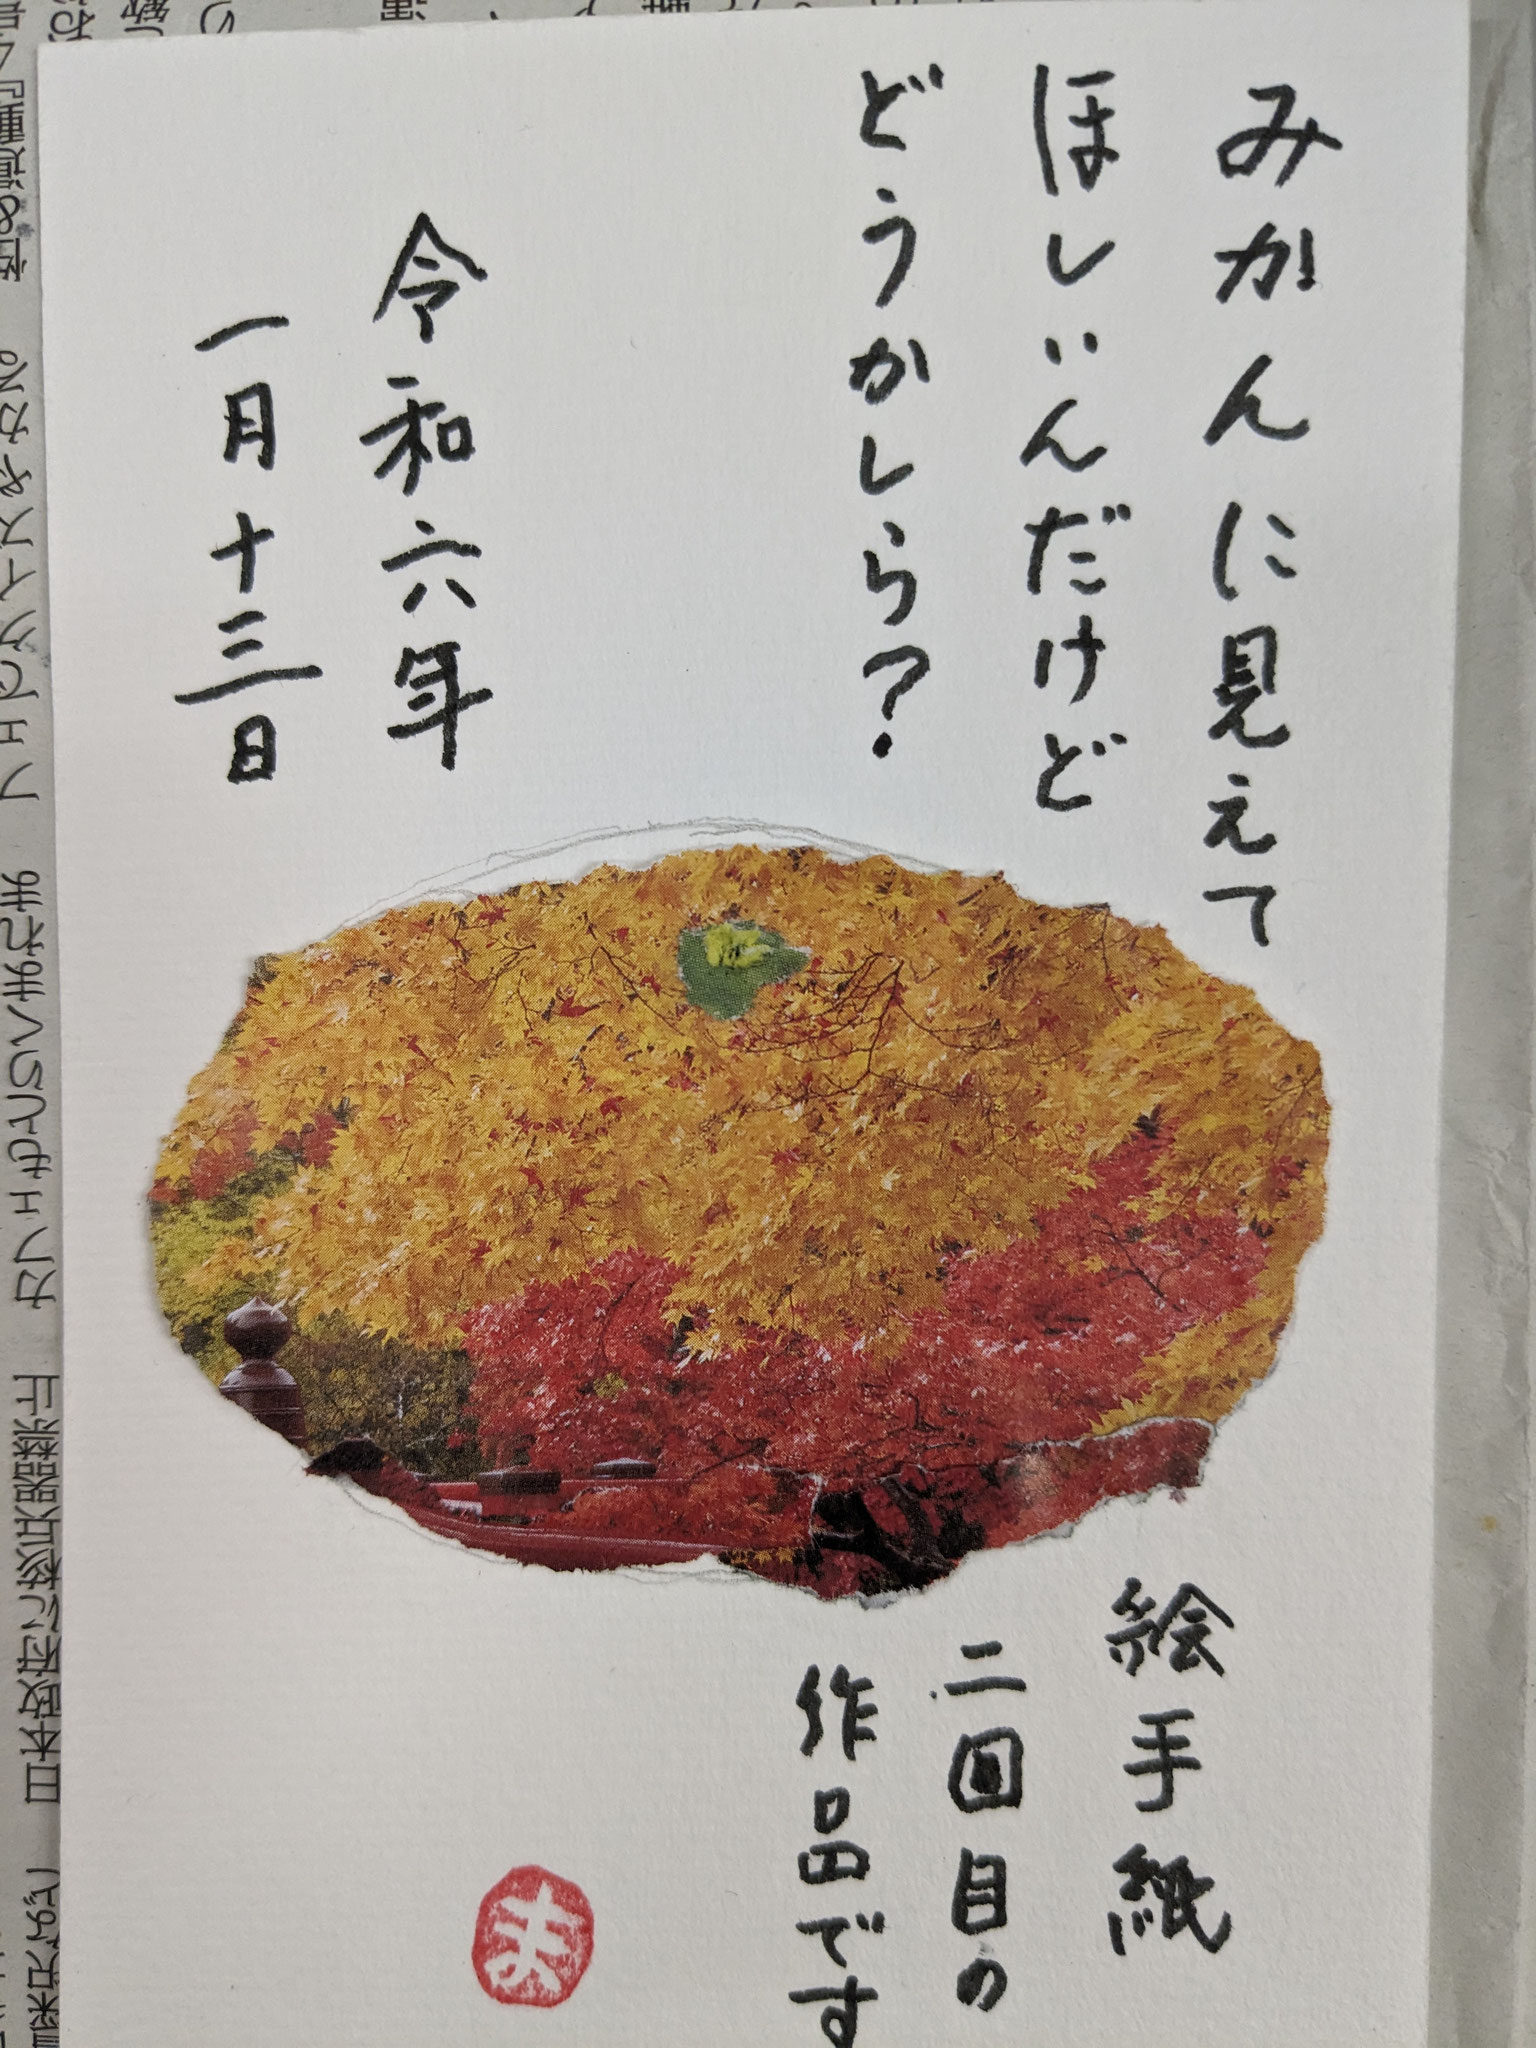 みかんに見えて
ほしいんだけど
どうかしら？
令和六年
一月十三日
絵手紙
二回目の
作品です
ま
日本政府に核兵器禁止